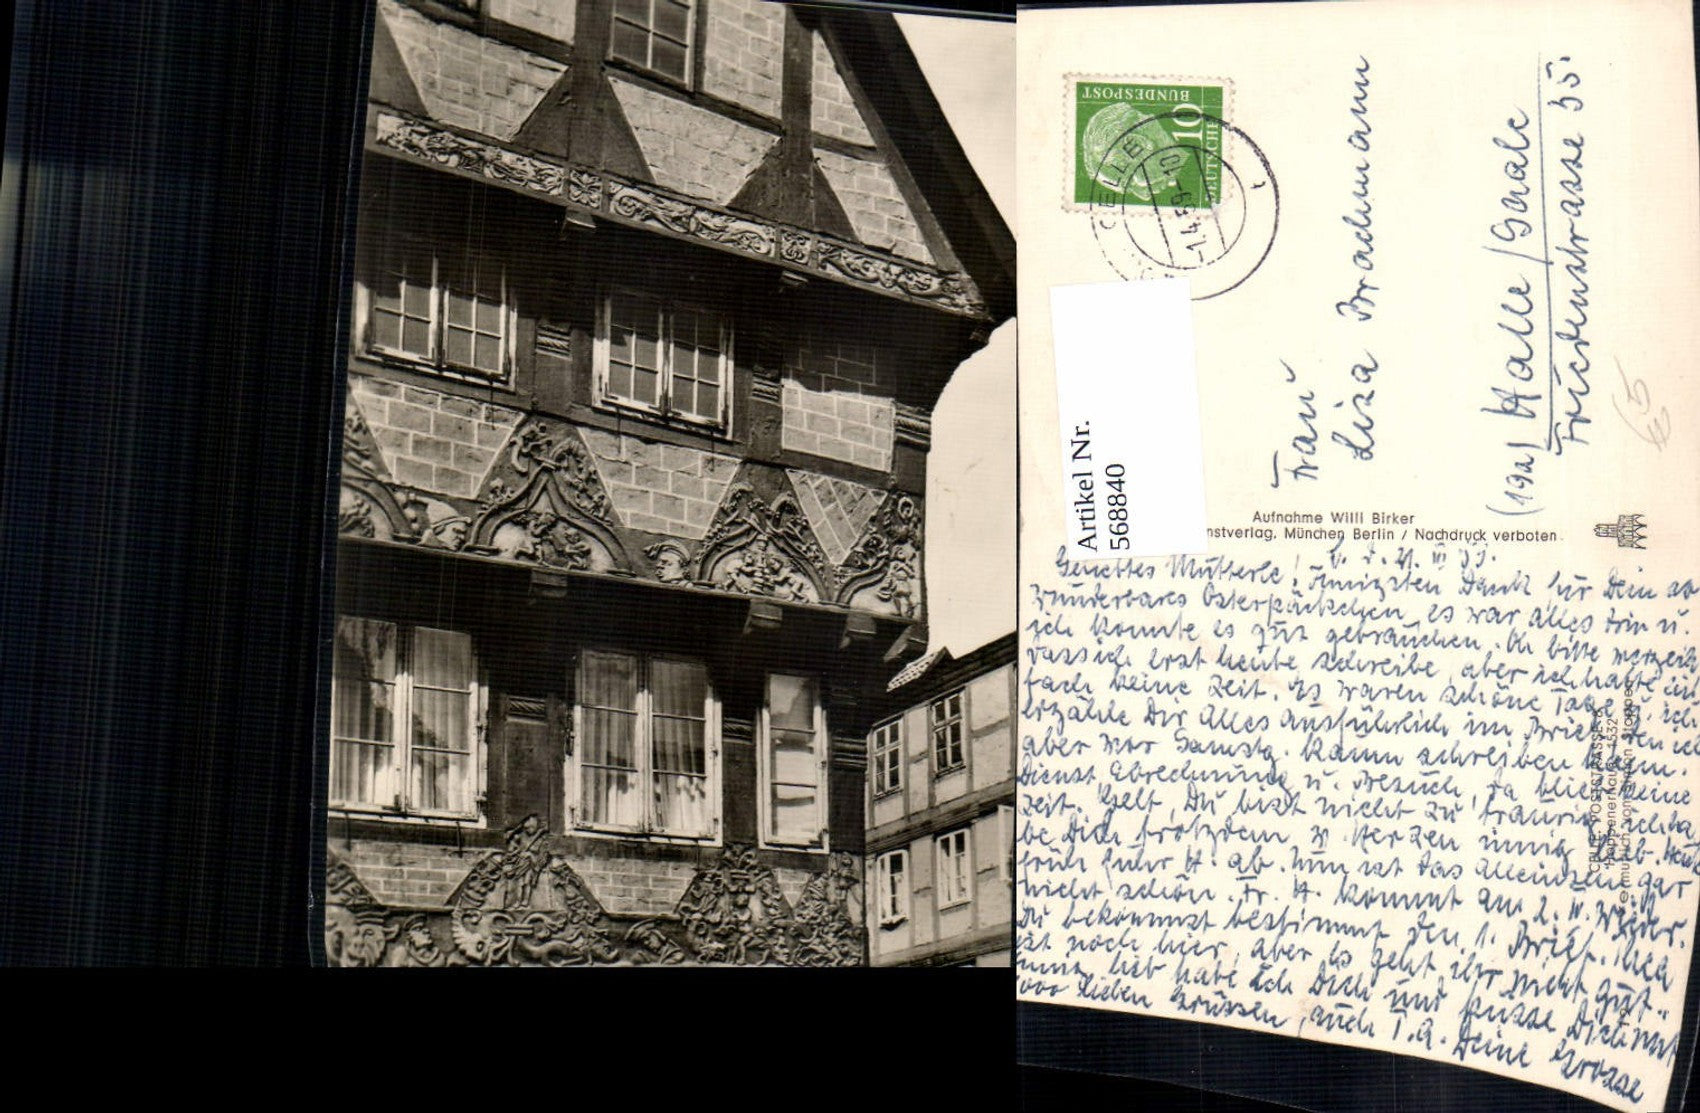 DEUTSCHE
BUNDESPOST
10
CELLE
-1.4.59-10
Artikel Nr.
568840
Frau
Lisa Brachmann
(19a) Halle/Saale
Friedenstrasse 35.
Aufnahme Willi Birker
nstverlag, München Berlin / Nachdruck verboten
Geliebtes Mutterle! Innigsten Dank für Dein so
wunderbares Osterpäckchen, es war alles drin u.
ich konnte es gut gebrauchen. Oh bitte verzeih
dass ich erst heute schreibe, aber ich hatte ein-
fach keine Zeit. Es waren schöne Tage u. ich
erzähle Dir alles ausführlich im Brief, den ich
aber vor Samstg. kaum schreiben kann.
Dienst, Abrechnung u. Besuch, da blieb keine
Zeit. Gelt, Du bist nicht zu traurig, ich ha-
be Dich trotzdem v. Herzen innig lieb. Heute
früh fuhr H. ab. Nun ist das Alleinsein gar
nicht schön. Fr. H. kommt am 2. IV. wieder.
Du bekommst bestimmt den 1. Brief.
ist noch hier, aber es geht ihr nicht gut.
lieb habe ich Dich und küsse Dich mit
1000 lieben Grüssen, auch T. A. Deine Grosse